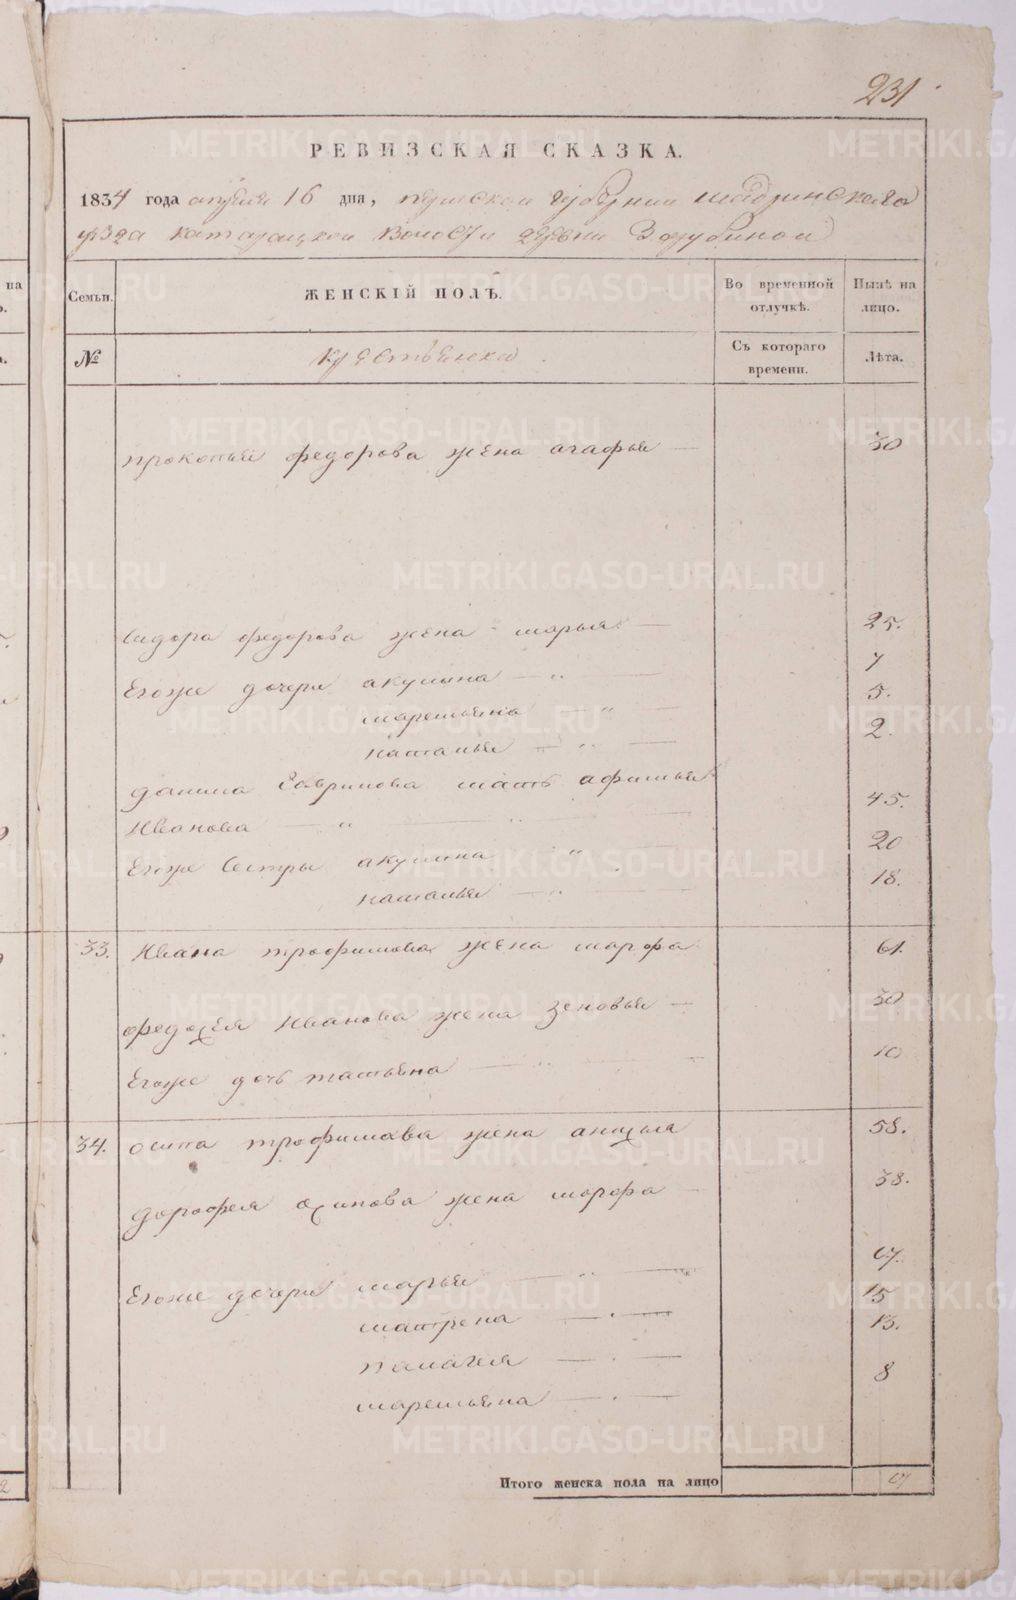 231
РЕВИЗСКАЯ СКАЗКА.
1834 года апреля 16 дня, пермской губернии шадринскаго
уезда катайской волости деревни Зарубиной
Семьи. ЖЕНСКІЙ ПОЛЪ. Во временной отлучкѣ. Нынѣ на лицо.
№ Съ котораго времени. Лѣта.
прокопья федорова жена агафья — 30
Сидора федорова жена марья — 25.
Егоже дочери акулина — „ — 7
маремьяна — „ — 5.
наталья — „ — 2.
данила Гавриллова мать афимья
Иванова — „ — 45.
Егоже Сестры акулина „ — 20
наталья — „ 18.
33. Ивана трофимова жена марфа 61.
Иванова жена зеновья — 30
Егоже дочь татьяна — „ — 10
34. осипа трофимова жена 58.
дорофея осипова жена марфа — 38.
Егоже дочери марья — „ — 17.
матрена — „ — 15
палагея — „ — 13.
маремьяна — „ — 8
Итого женска пола на лицо 17
METRIKI.GASO-URAL.RU